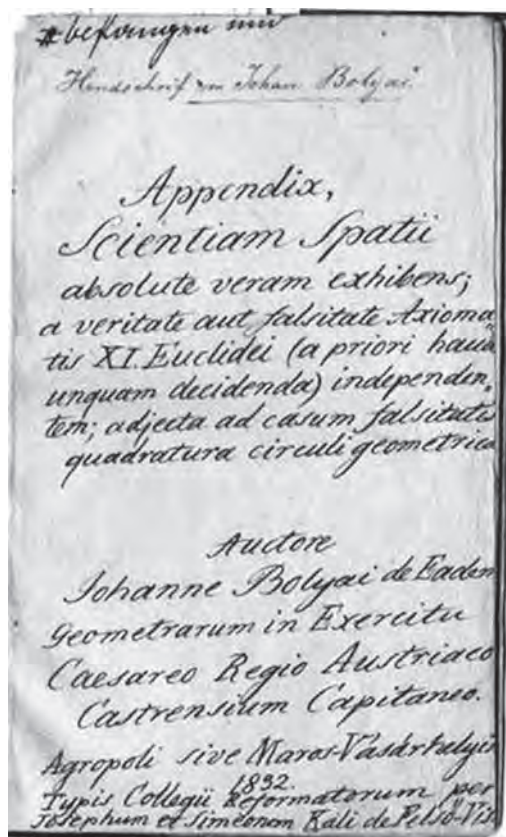 Handschrift von Johan Bolyai
Appendix,
Scientiam Spatii
absolute veram exhibens;
a veritate aut falsitate Axioma
tis XI. Euclidei (a priori haud
unquam decidenda) independen,
tem; adjecta ad casum falsitatis
quadratura circuli geometrica
Auctore
Johanne Bolyai de Eadem
Geometrarum in Exercitu
Caesareo Regio Austriaco
Castrensium Capitaneo.
Agropoli sive Maros-Vásárhelyii
1832.
Typis Collegii Reformatorum per
Josephum et Simeonem Kali de Felsö-Vist